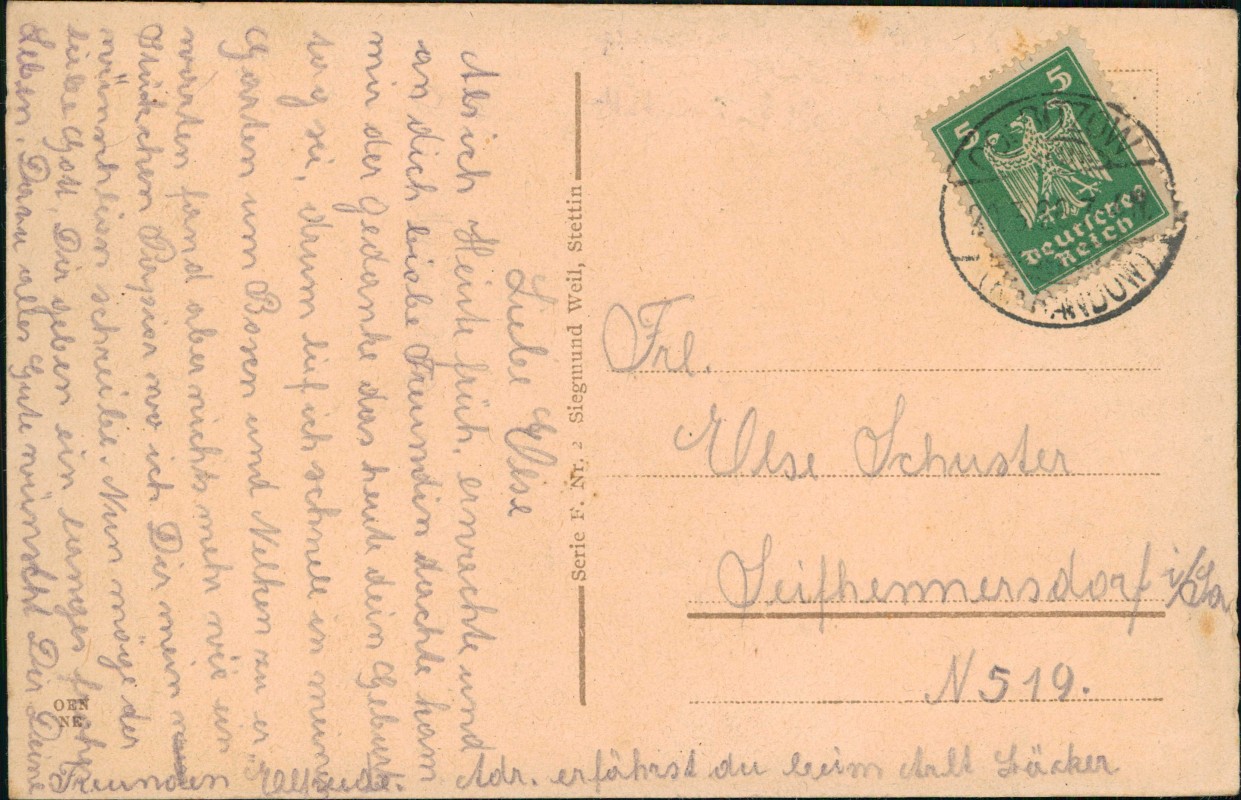 Liebe Else
Als ich Heute früh, erwachte und
an dich liebe Freundin dachte kam
mir der Gedanke das heute dein Geburts
tag sei, drum lief ich schnell in mein
Garten um Rosen und Nelken zu er„
warten fand aber nichts mehr wie ein
Stückchen Papier wo ich Dir mein
schreibe. Nun möge der
liebe Gott, Dir geben ein langes
Leben, Dazu alles Gute wünscht Dir Deine
Freundin Elfriede. Adr. erfährst du beim Arlt Bäcker
Serie F. Nr. 2 Siegmund Weil, Stettin
OEN
NE
5 5
Deutsches
Reich
Frl.
Else Schuster
Seifhennersdorf i/Sa.
N 519.